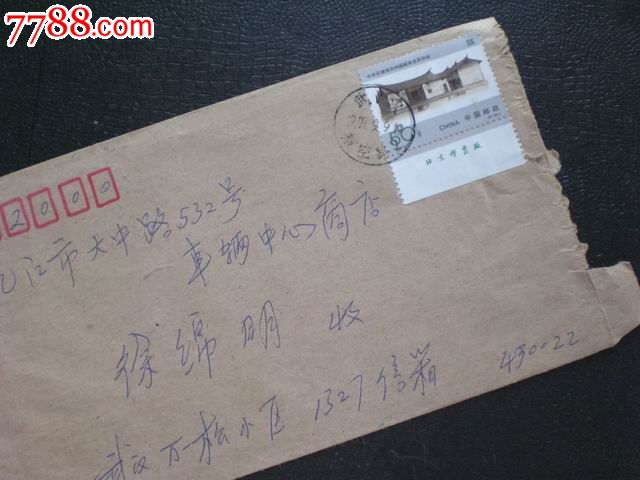 7788.com
中国邮政
CHINA
50
北京邮票厂
2000
江市大中路532号
车辆中心商店
徐绵明 收
武汉万松小区1327信箱 430022